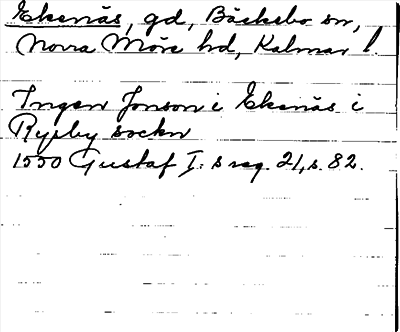 Ekenäs, gd, Bäckebo sn,
Norra Möre hd, Kalmar l.
Ingen Jonson i Ekenäs i
Ryssby sockn
1550 Gustaf I:s reg. 21, s. 82.